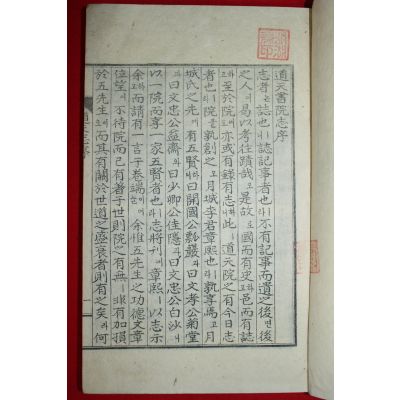 道天書院志序
志者는誌也ㅣ니誌記事者也ㅣ라不有記事而遺之後면後
之人이易以考往蹟哉아是故로國而有史하고邑而有誌
至於院도亦或有錄有志하니此ㅣ道天院之有今日志
者也ㅣ라院을孰創之오月城李君章熙也ㅣ라孰享焉고月
城氏之先에有五賢하니曰開國公瓢巖과曰文孝公菊堂
과曰文忠公益齋와曰少卿公佳隱과曰文忠公白沙ㅣ니
以一院而享一家五賢者也ㅣ라志將刊에章熙ㅣ以志示
余하고而請有一言于卷端이余惟五先生之功德文章
位望이不待院而已有著于世則院之有無ㅣ非有加損
於五先生로而其有關於世道之盛衰者則有之矣라何